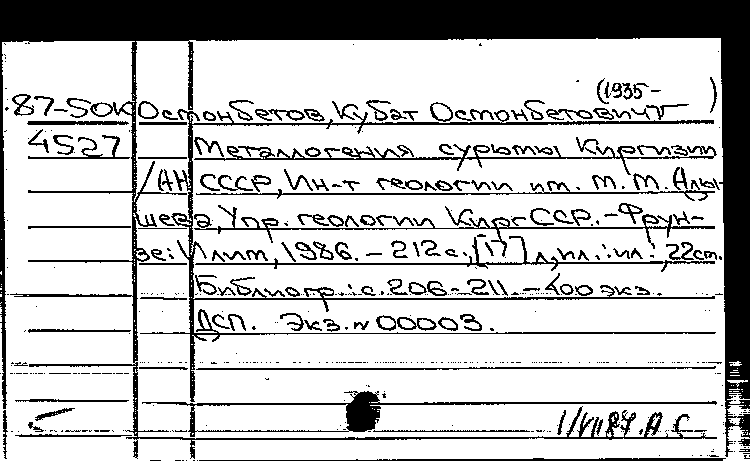 (1935- )
87-5ОК Остонбетов, Кубат Остонбетович
4527 Металлогения сурьмы Киргизии
/АН СССР, Ин-т геологии им. М. М. Адыше-
шева, Упр. геологии КиргССР. - Фрун-
зе: Илим, 1986. - 212 с., [17] л. ил. : ил. ; 22 см.
Библиогр.: с. 206-211. - 400 экз.
ДСП. Экз. N 00003.
1/VII87. А. С.